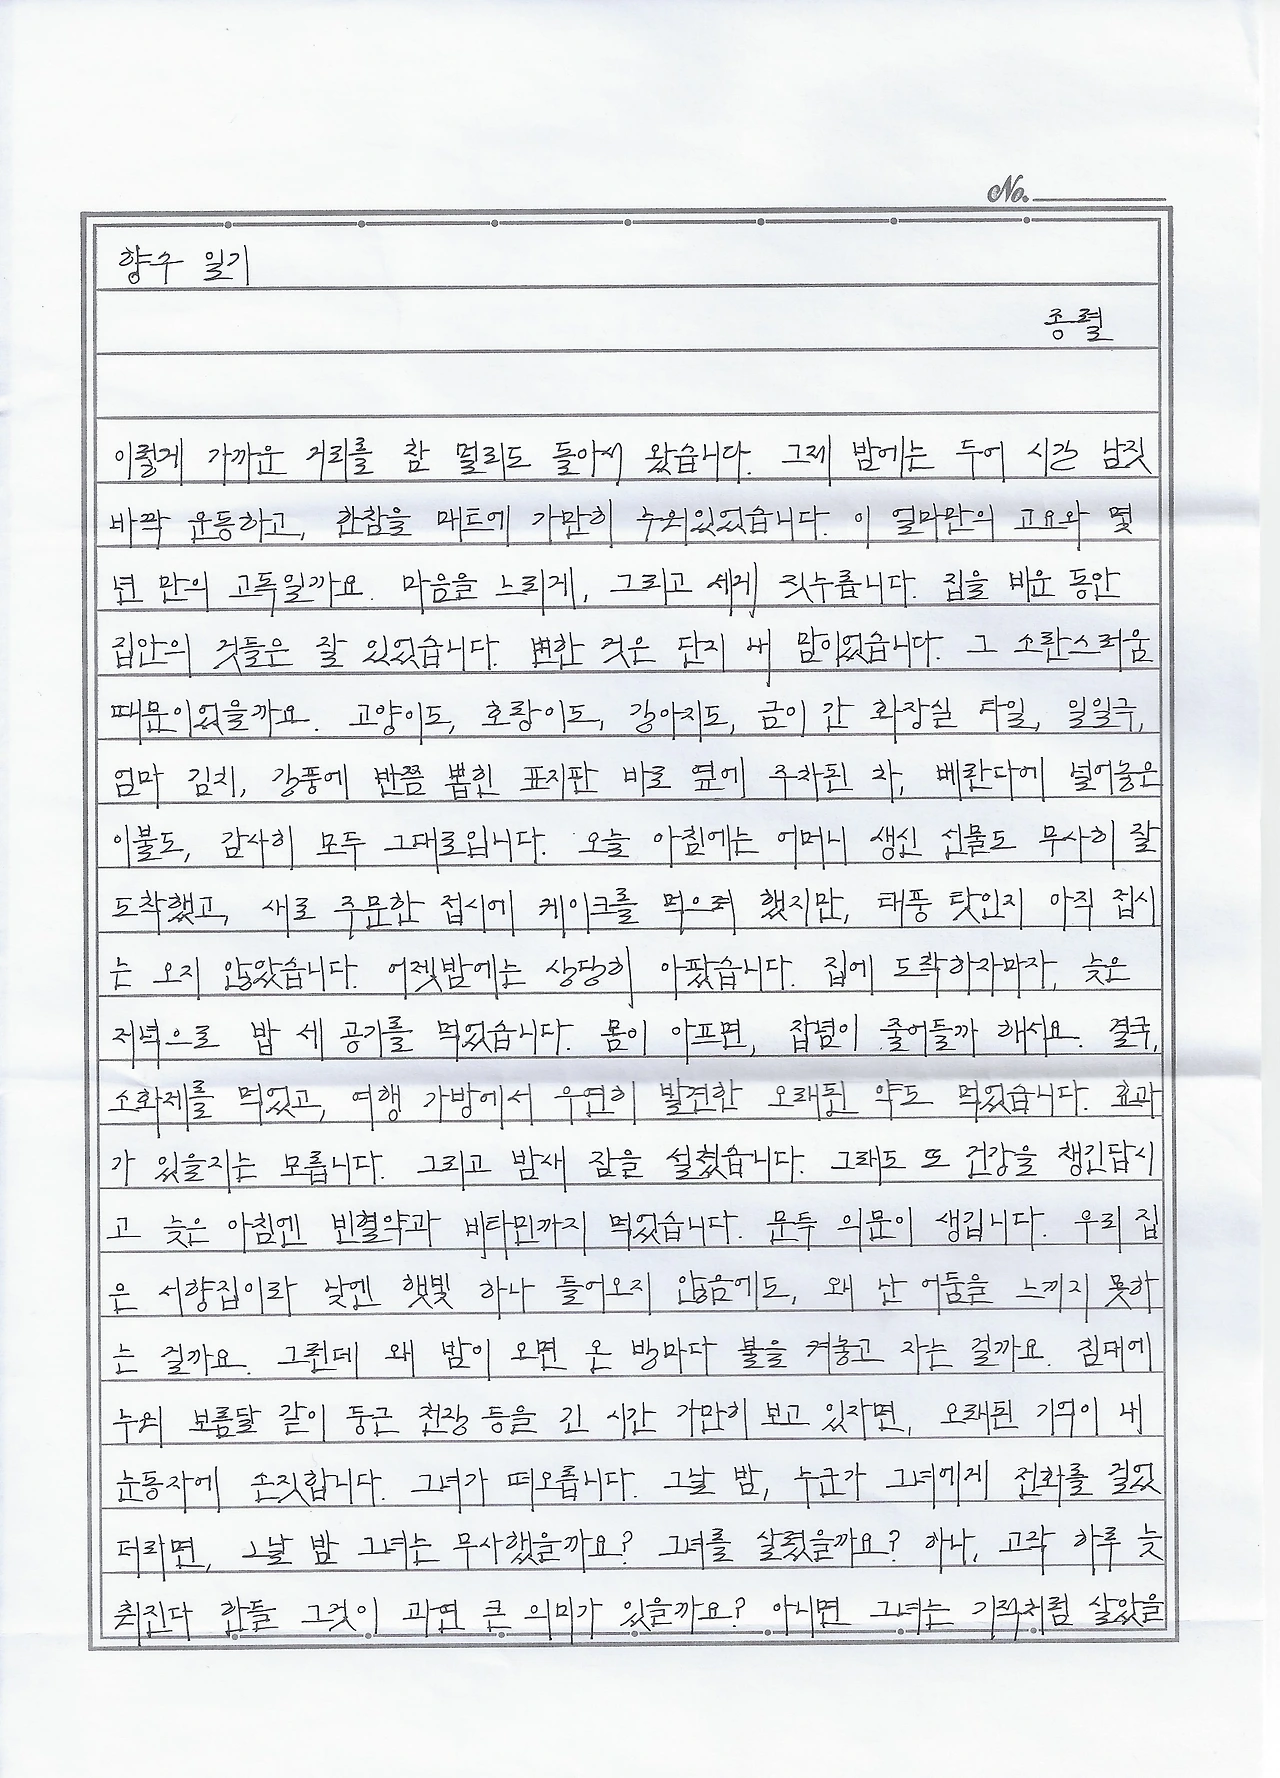 No.
향수 일기
종렬
이렇게 가까운 거리를 참 멀리도 돌아서 왔습니다. 그제 밤에는 두어 시간 남짓
바짝 운동하고, 한참을 매트에 가만히 누워있었습니다. 이 얼마만의 고요와 몇
년 만의 고독일까요. 마음을 느리게, 그리고 세게 짓누릅니다. 집을 비운 동안
집안의 것들은 잘 있었습니다. 변한 것은 단지 내 맘이었습니다. 그 소란스러움
때문이었을까요. 고양이도, 호랑이도, 강아지도, 금이 간 화장실 타일, 일일극,
엄마 김치, 강풍에 반쯤 뽑힌 표지판 바로 옆에 주차된 차, 베란다에 널어놓은
이불도, 감사히 모두 그대로입니다. 오늘 아침에는 어머니 생신 선물도 무사히 잘
도착했고, 새로 주문한 접시에 케이크를 먹으려 했지만, 태풍 탓인지 아직 접시
는 오지 않았습니다. 어젯밤에는 상당히 아팠습니다. 집에 도착하자마자, 늦은
저녁으로 밥 세 공기를 먹었습니다. 몸이 아프면, 잡념이 줄어들까 해서요. 결국,
소화제를 먹었고, 여행 가방에서 우연히 발견한 오래된 약도 먹었습니다. 효과
가 있을지는 모릅니다. 그리고 밤새 잠을 설쳤습니다. 그래도 또 건강을 챙긴답시
고 늦은 아침엔 빈혈약과 비타민까지 먹었습니다. 문득 의문이 생깁니다. 우리 집
은 서향집이라 낮엔 햇빛 하나 들어오지 않음에도, 왜 난 어둠을 느끼지 못하
는 걸까요. 그런데 왜 밤이 오면 온 방마다 불을 켜놓고 자는 걸까요. 침대에
누워 보름달 같이 둥근 천장 등을 긴 시간 가만히 보고 있자면, 오래된 기억이 내
눈동자에 손짓합니다. 그녀가 떠오릅니다. 그날 밤, 누군가 그녀에게 전화를 걸었
더라면, 그날 밤 그녀는 무사했을까요? 그녀를 살렸을까요? 하나, 고작 하루 늦
춰진다 한들 그것이 과연 큰 의미가 있을까요? 아니면 그녀는 기적처럼 살았을